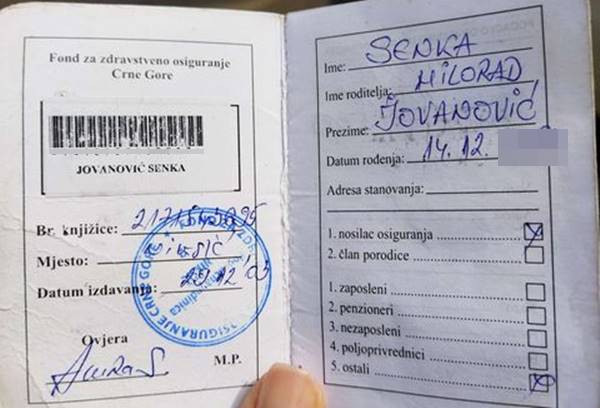 Fond za zdravstveno osiguranje
Crne Gore
JOVANOVIĆ SENKA
Br. knjižice:
Mjesto:
Datum izdavanja:
Ovjera
M.P.
Ime: SENKA
Ime roditelja: MILORAD
Prezime: JOVANOVIĆ
Datum rođenja: 14. 12.
Adresa stanovanja:
1. nosilac osiguranja
2. član porodice
1. zaposleni
2. penzioneri
3. nezaposleni
4. poljoprivrednici
5. ostali